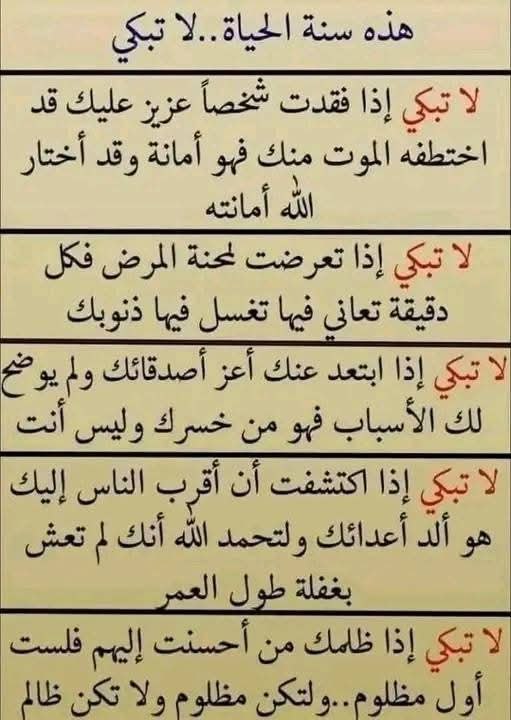 هذه سنة الحياة..لا تبكي
لا تبكي إذا فقدت شخصاً عزيز عليك قد
اختطفه الموت منك فهو أمانة وقد أختار
الله أمانته
لا تبكي إذا تعرضت لمحنة المرض فكل
دقيقة تعاني فيها تغسل فيها ذنوبك
لا تبكي إذا ابتعد عنك أعز أصدقائك ولم يوضح
لك الأسباب فهو من خسرك وليس أنت
لا تبكي إذا اكتشفت أن أقرب الناس إليك
هو ألد أعدائك ولتحمد الله أنك لم تعش
بغفلة طول العمر
لا تبكي إذا ظلمك من أحسنت إليهم فلست
أول مظلوم..ولتكن مظلوم ولا تكن ظالم